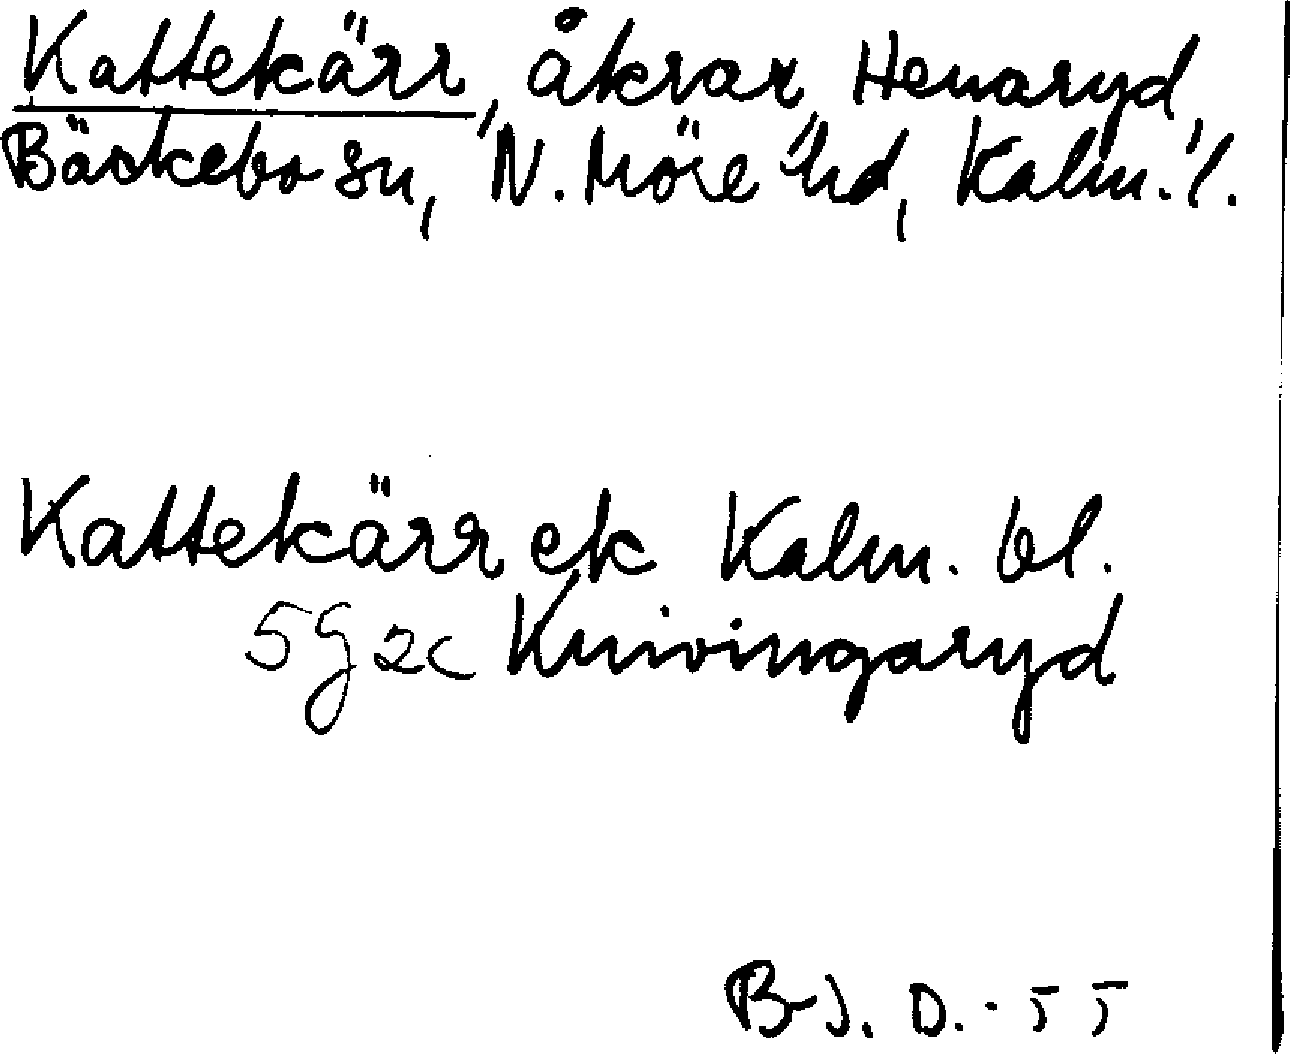 Kattekärr, åkrar, Henaryd,
Bäckebo sn, N. Möre hd, Kalm. l.
Kattekärr ek Kalm. bl.
5G 2c Knivingaryd
B-J. D. - 55